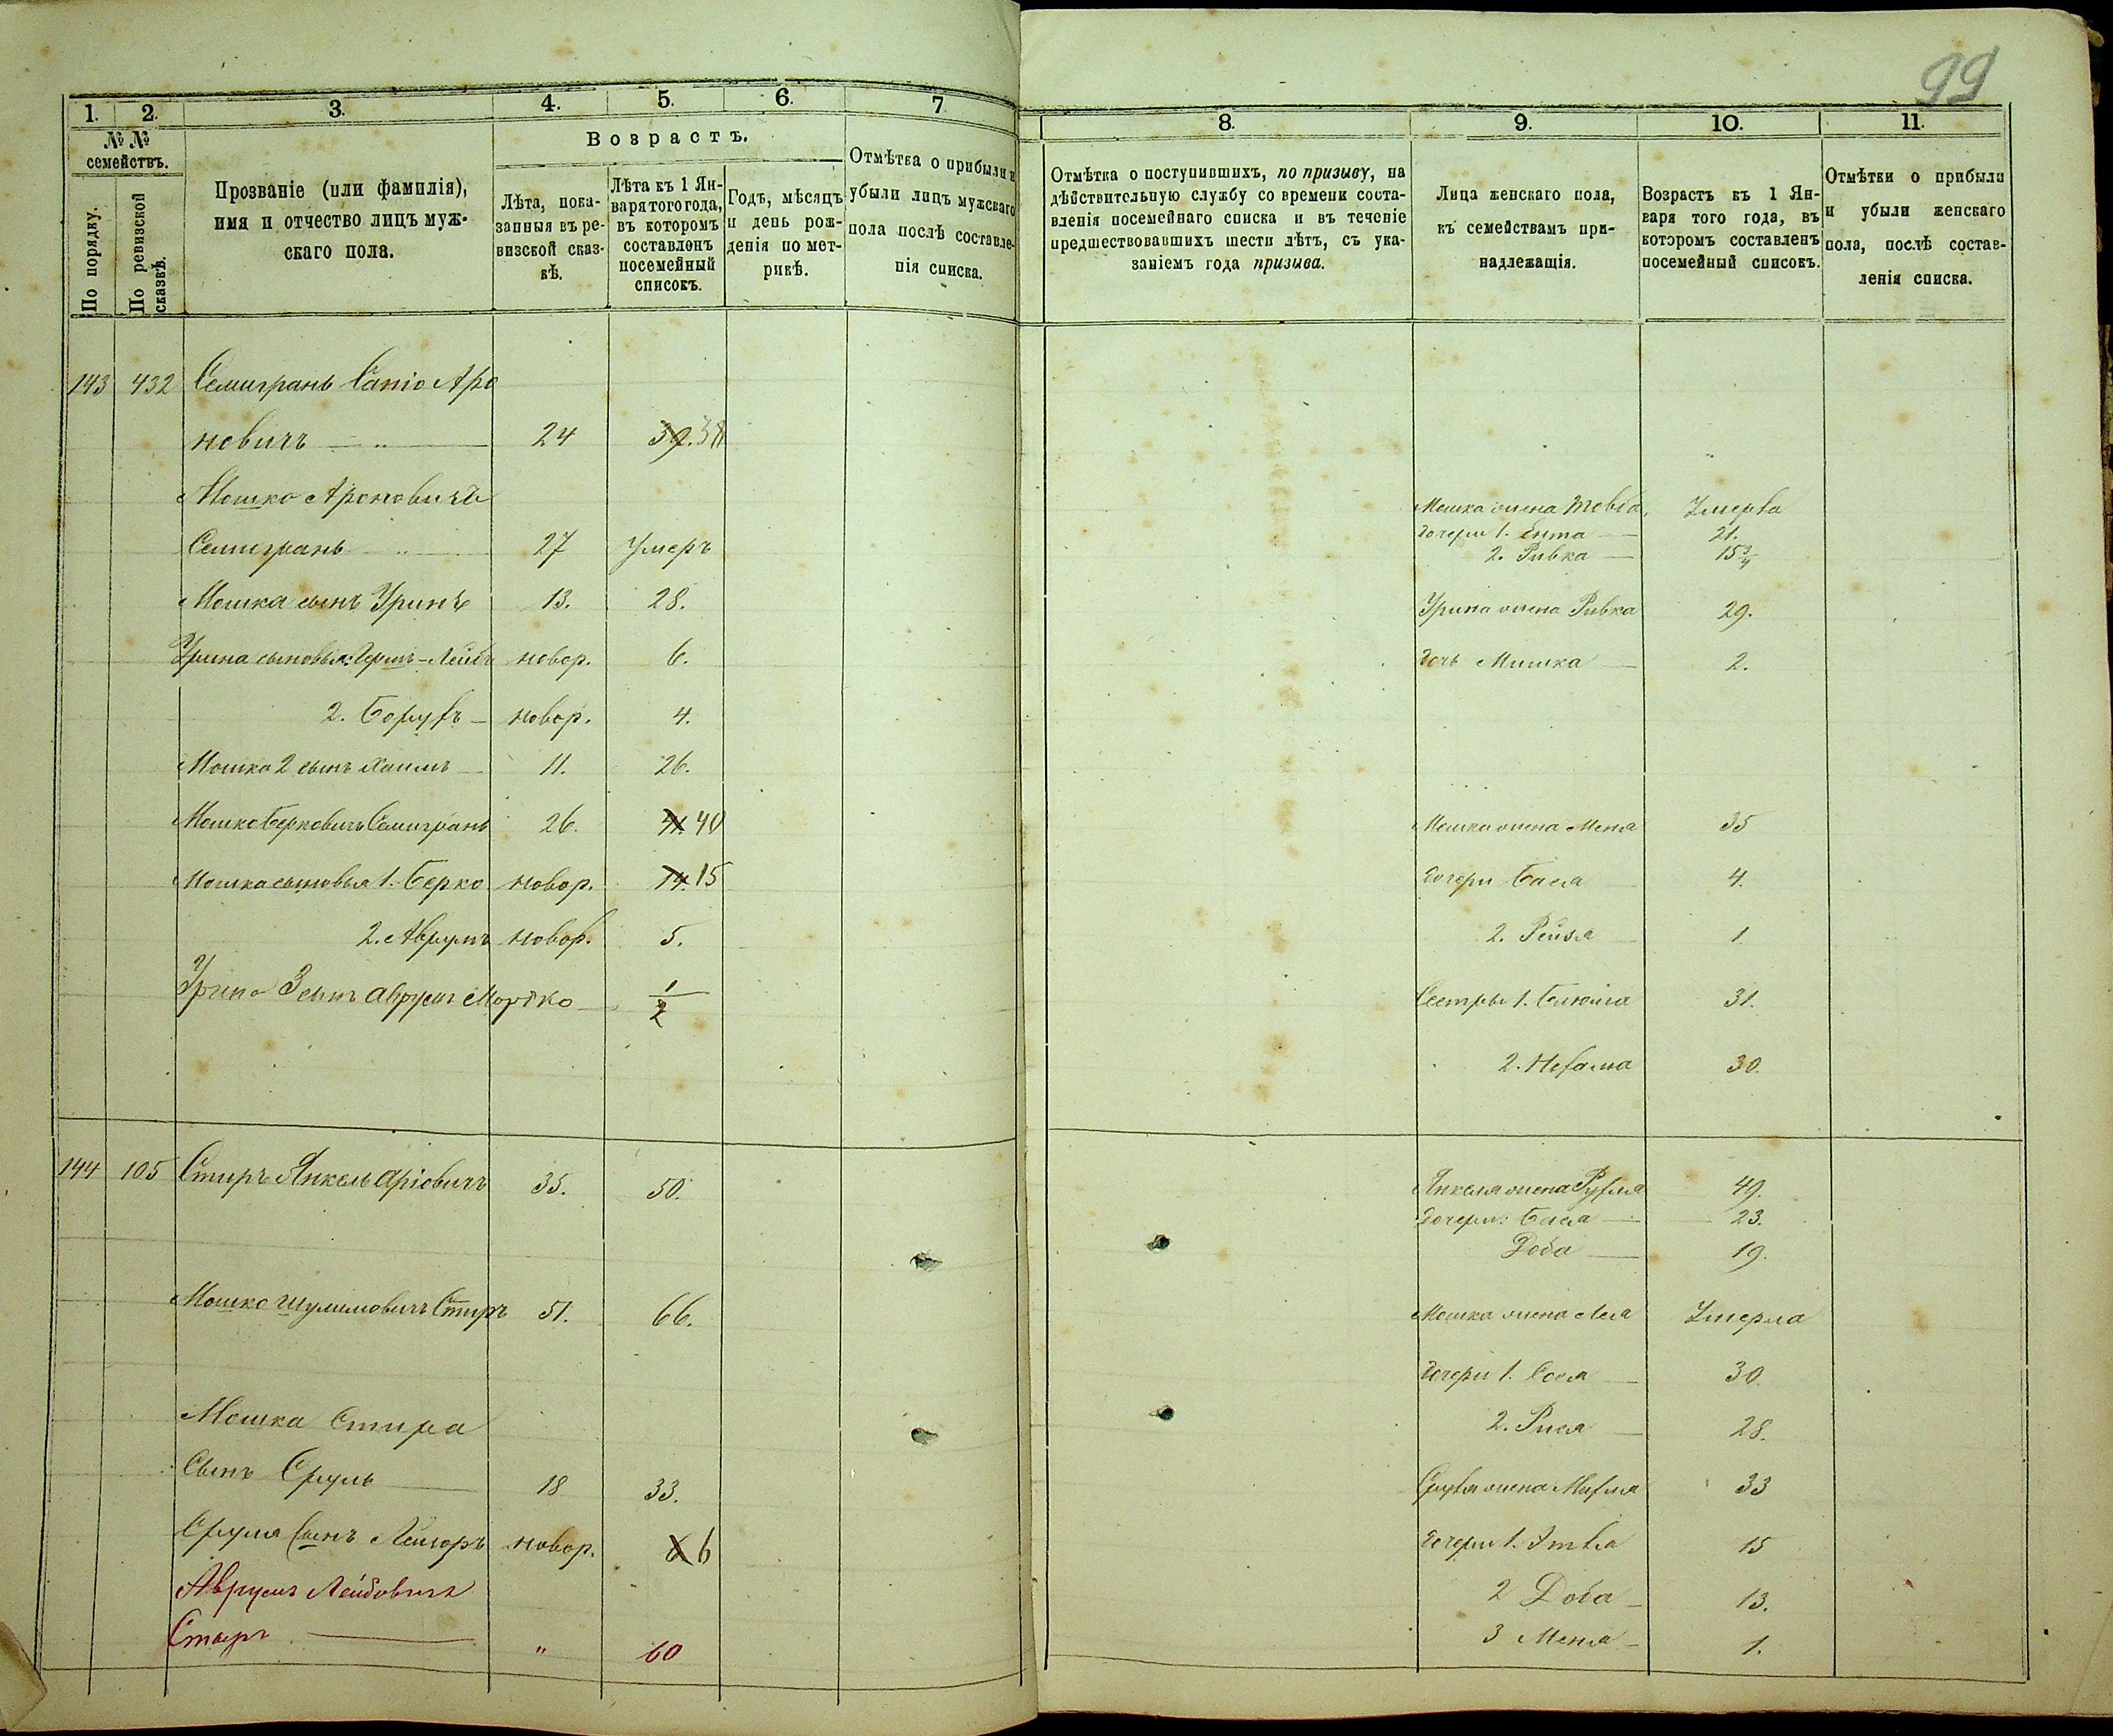 99
1. 2. 3. 4. 5. 6. 7
8. 9. 10. 11.
№ № семействъ.
По порядку.
По ревизской сказкѣ.
Прозваніе (или фамилія),
имя и отчество лицъ муж-
скаго пола.
Возрастъ.
Лѣта, пока-
занныя въ ре-
визской сказ-
кѣ.
Лѣта къ 1 Ян-
варя того года,
въ которомъ
составленъ
посемейный
списокъ.
Годъ, мѣсяцъ
и день рож-
денія по мет-
рикѣ.
Отмѣтка о прибыли и
убыли лицъ мужскаго
пола послѣ составле-
нія списка.
Отмѣтка о поступившихъ, по призыву, на
дѣйствительную службу со времени соста-
вленія посемейнаго списка и въ теченіе
предшествовавшихъ шести лѣтъ, съ ука-
заніемъ года призыва.
Лица женскаго пола,
къ семействамъ при-
надлежащія.
Возрастъ къ 1 Ян-
варя того года, въ
которомъ составленъ
посемейный списокъ.
Отмѣтки о прибыли
и убыли женскаго
пола, послѣ состав-
ленія списка.
143 432 Семигранъ Аро
новичъ — „ — 24 38
Мошко Ароновичъ
Мошка жена Умерла
Семигранъ „ 27 Умеръ
дочери 1. Ента — 21.
2. Ривка — 15 3/4
Мошка сынъ Уринъ 13. 28.
Урина жена Ривка 29.
Урина сыновья: Герш-Лейбъ новор. 6.
дочь Мишка — 2.
2. Борухъ — новор. 4.
Мошка 2 сынъ Хаимъ — 11. 26.
Мошко Берковичъ Семигранъ 26. 40
Мошка жена Меня 35
Мошка сыновья 1. Берко новор. 14. 15
дочери Бася 4.
2. Аврумъ новор. 5.
2. Рейзя 1
Урина 3 сынъ Аврумъ Мордко — 1/2
Сестры 1. Блюма 31.
2. Нехама 30.
144 105 Стиръ Янкель Аріовичъ 35. 50.
Янкеля жена Рухля 49.
дочери: Бася — 23.
Доба — 19.
Мошко Шулимовичъ Стиръ 51. 66.
Мошка жена Лея Умерла
дочери 1. Сося — 30
Мошка Стира
2. Рися — 28.
Сынъ Сруль — 18 33.
Сруля жена Михля 33
Сруля Сынъ Лейзоръ новор. 6
дочери 1. Этля 15
Аврумъ Лейбовичъ
2 Доба — 13.
Стиръ — „ 60
3 Меня — 1.